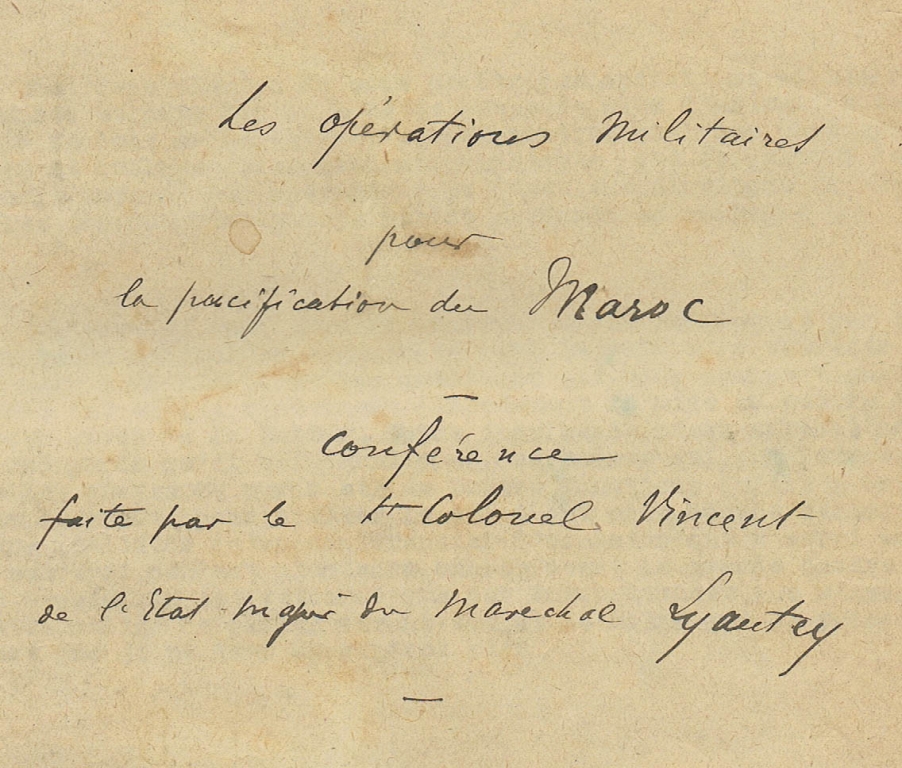 Les opérations militaires
pour
la pacification du Maroc
—
conférence
faite par le Lt Colonel Vincent
de l'Etat-major du Marechal Lyautey
—